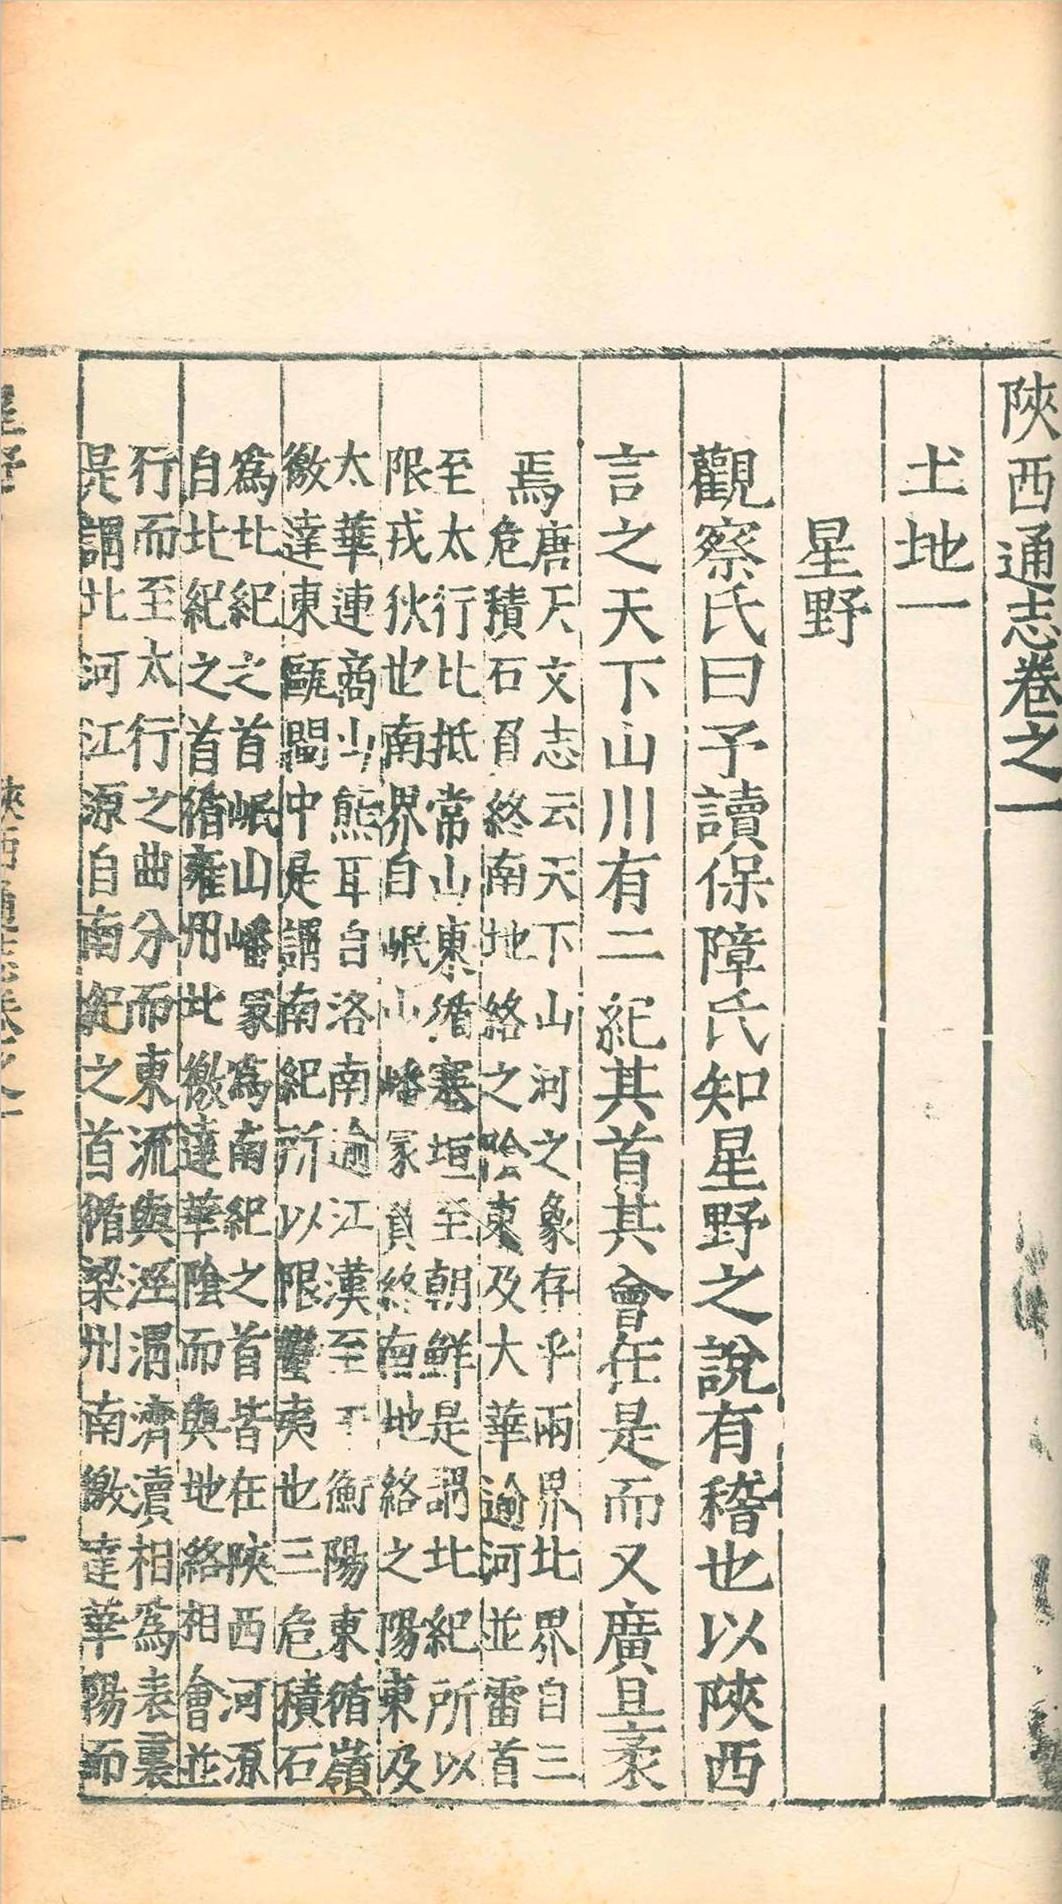 陝西通志卷之一
土地一
星野
觀察氏曰予讀保障氏知星野之說有稽也以陝西
言之天下山川有二紀其首其會在是而又廣且袤
焉
唐天文志云天下山河之象存乎兩界北界自三
危積石負終南地絡之陰東及大華逾河並雷首
至太行北抵常山東循塞垣至朝鮮是謂北紀所以
限戎狄也南界自岷山嶓冢負終南地絡之陽東及
太華連商山熊耳自洛南逾江漢至于衡陽東循嶺
徼達東甌閩中是謂南紀所以限蠻夷也三危積石
爲北紀之首岷山嶓冢爲南紀之首皆在陝西河源
自北紀之首循雍州北徼達華陰而與地絡相會並
行而至太行之曲分而東流與涇渭濟瀆相爲表裏
是謂北河江源自南紀之首循梁州南徼達華陽而